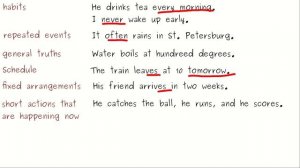 habits He drinks tea every morning.
I never wake up early.
repeated events It often rains in St. Petersburg.
general truths Water boils at hundreed degrees.
Schedule The train leaves at 10 tomorrow.
fixed arrangements His friend arrives in two weeks.
short actions that He catches the ball, he runs, and he scores.
are happening now